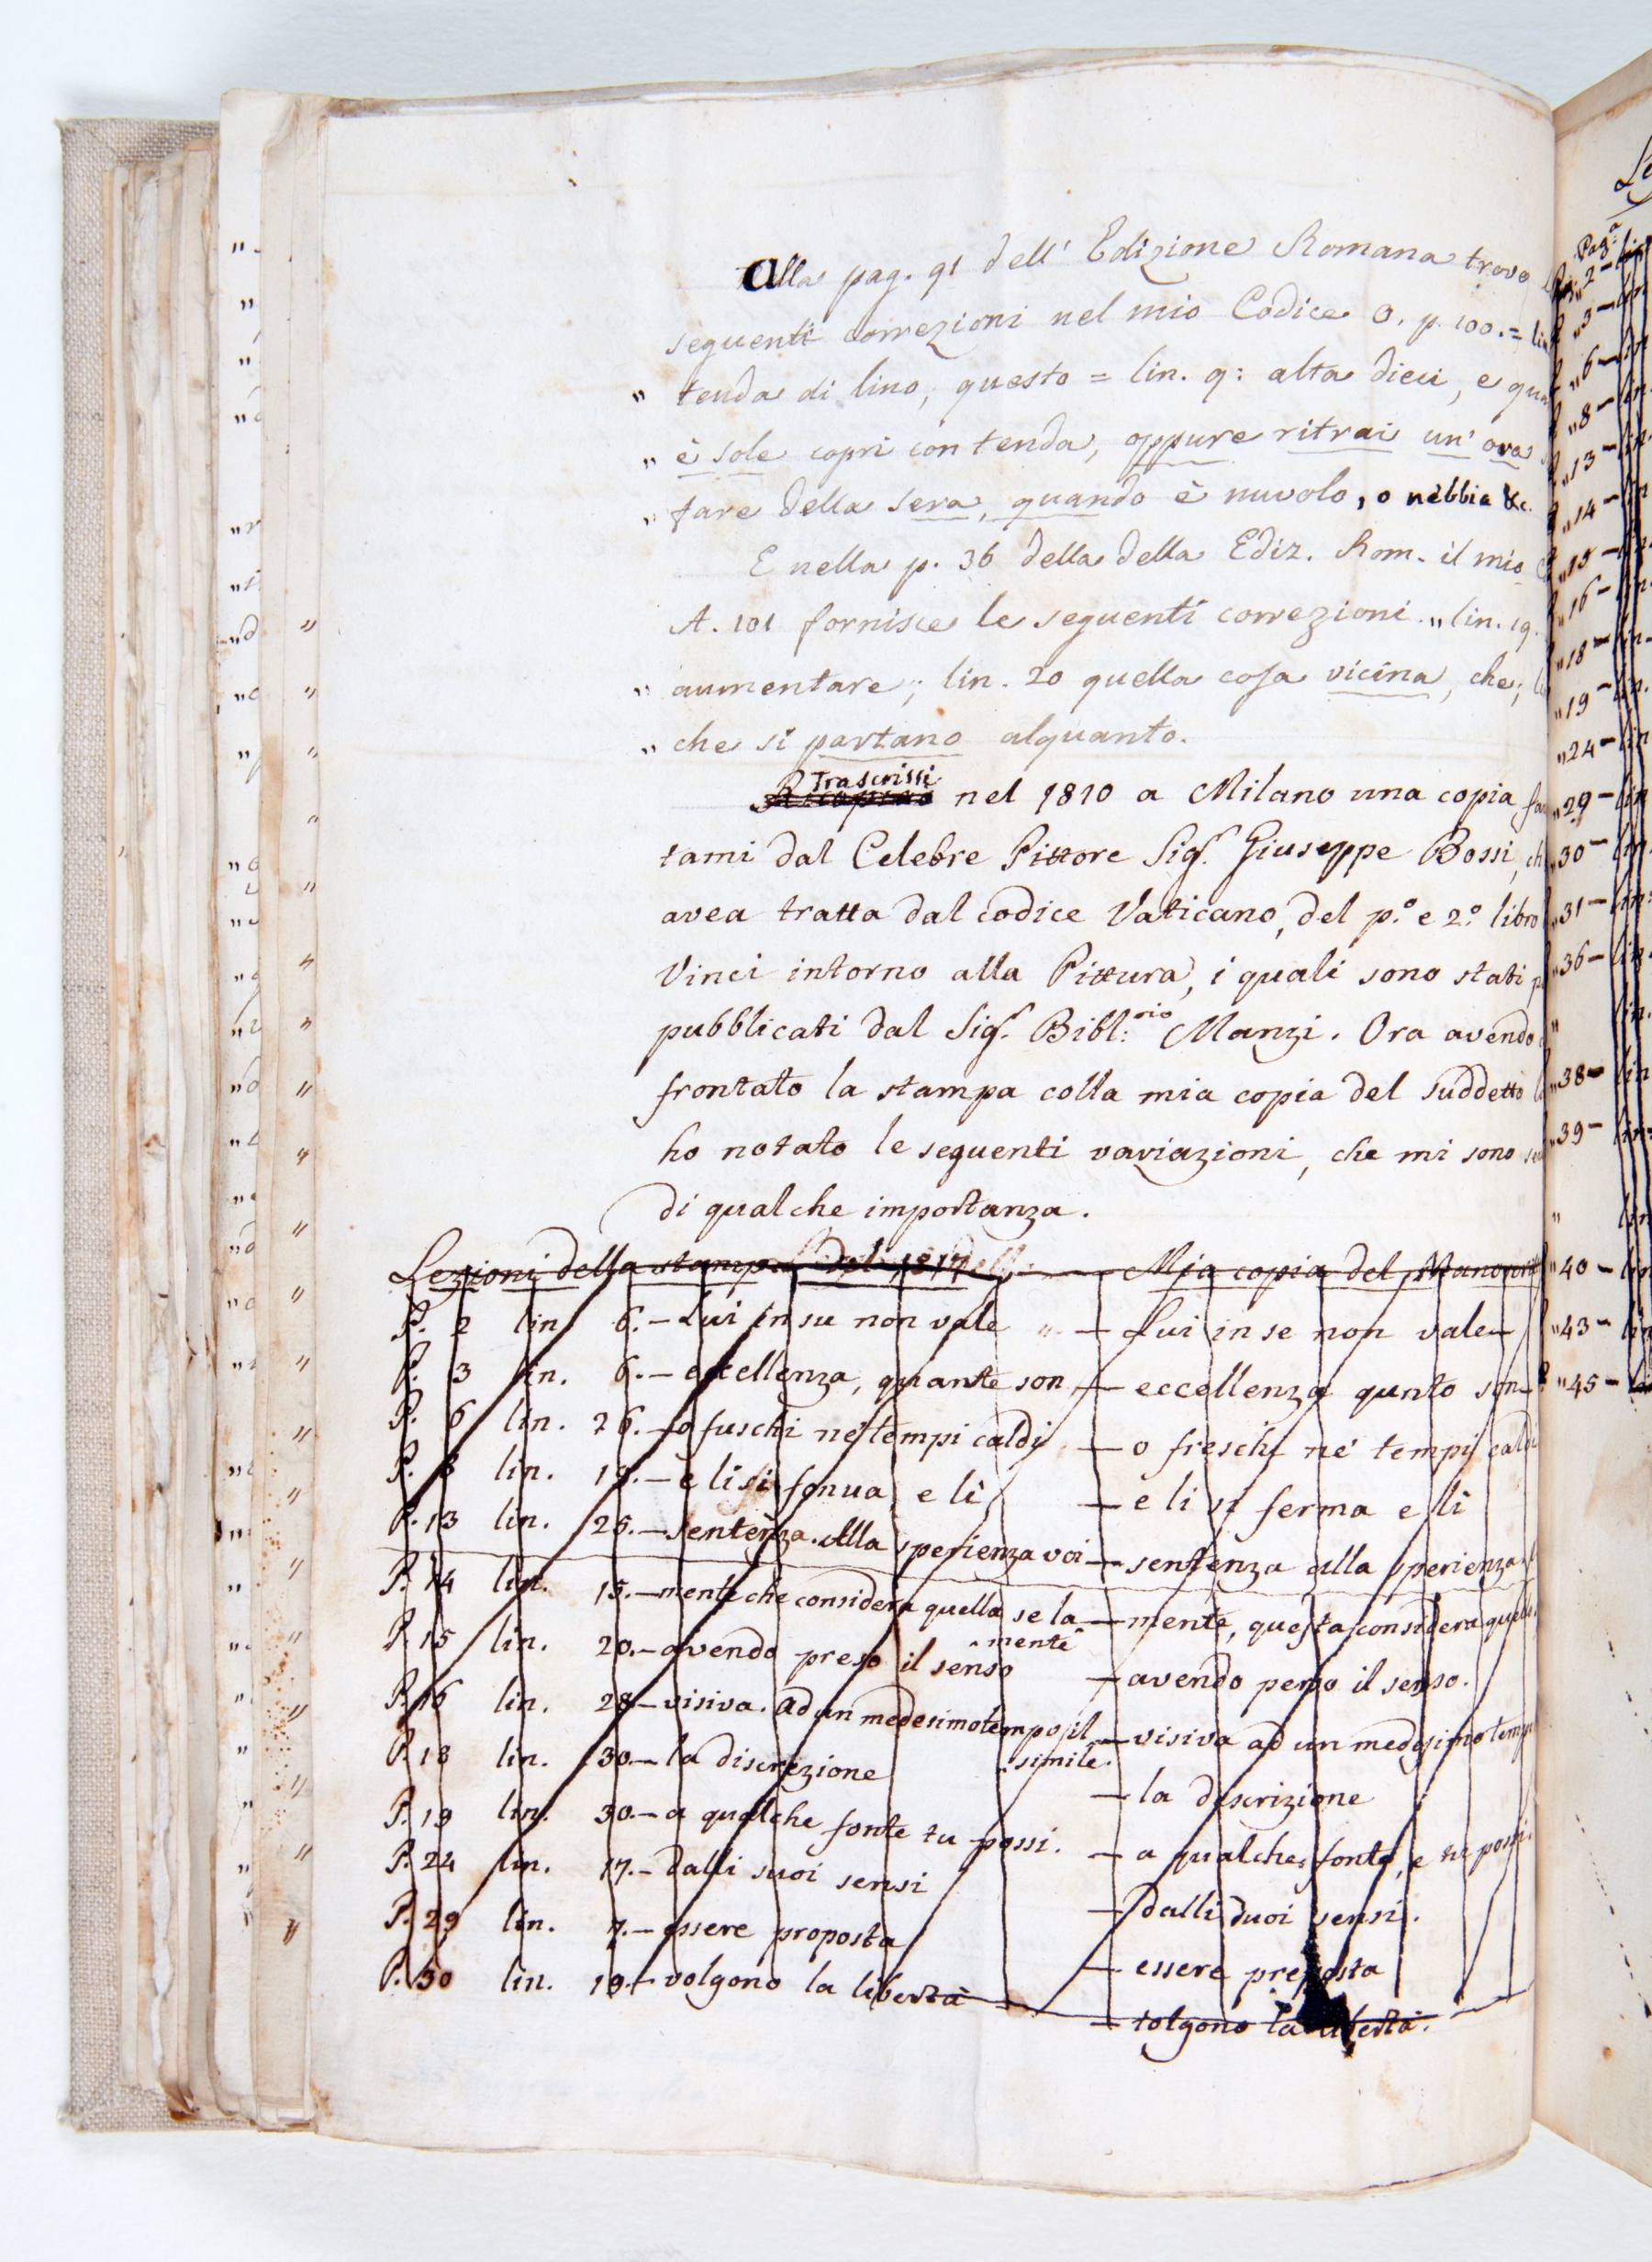 Alla pag. 91 dell' Edizione Romana trovo
seguenti correzioni nel mio Codice O. p. 100. =
" tenda di lino, questo = lin. 9: alta dieci, e
" è sole copri con tenda, oppure ritrai un' ora
" fare della sera, quando è nuvolo, o nebbia &c.
E nella p. 36 della della Ediz. Rom. il mio
A. 101 fornisce le seguenti correzioni „ lin. 19.
" aumentare; lin. 20 quella cosa vicina, che;
" che si partano alquanto.
Trascrissi
nel 1810 a Milano una copia
tami dal Celebre Pittore Sigr. Giuseppe Bossi,
avea tratta dal codice Vaticano, del p.o e 2.o libro
Vinci intorno alla Pittura, i quali sono stati
pubblicati dal Sigr. Bibl:rio Manzi. Ora avendo
frontato la stampa colla mia copia del Suddetto
ho notato le seguenti variazioni, che mi sono
di qualche importanza.
Lezioni della stampa del 1817 — Mia copia del
P. 2 lin. 6. — Lui in su non vale — Lui in se non vale
P. 3 lin. 6. — eccellenza, quante son — eccellenza qunto son
P. 6 lin. 26. — o fuschi ne' tempi caldi — o freschi ne' tempi caldi
P. 8 lin. 19. — e lì si fonua, e lì — e li si ferma e lì
P. 13 lin. 25. — sentenza. Alla sperienza voi — sentenza alla sperienza
P. 14 lin. 15. — mente che considera quella se la — mente, questa considera
mente
P. 15 lin. 20. — avendo preso il senso — avendo perso il senso.
P. 16 lin. 28 — visiva. Ad un medesimo tempo il — visiva ad un medesimo
simile.
P. 18 lin. 30. — la discrezione — la descrizione
P. 19 lin. 30. — a qualche fonte tu possi. — a qualche fonte, e tu possi.
P. 24 lin. 17. — dalli suoi sensi — dalli duoi sensi.
P. 29 lin. 7. — essere proposta — essere preposta
P. 30 lin. 19. — volgono la libertà — tolgono la libertà.
Pag.a
" 2 — lin
" 3 — lin
" 6 — lin
" 8 — lin.
" 13 — lin
" 14 — lin
" 15 —
" 16 — lin
" 18 — lin.
" 19 — lin.
" 24 — lin
" 29 — lin
" 30 — lin
" 31 — lin:
" 36 — lin.
" lin.
" 38 — lin
" 39 — lin:
" lin
" 40 — lin
" 43 — lin
" 45 —